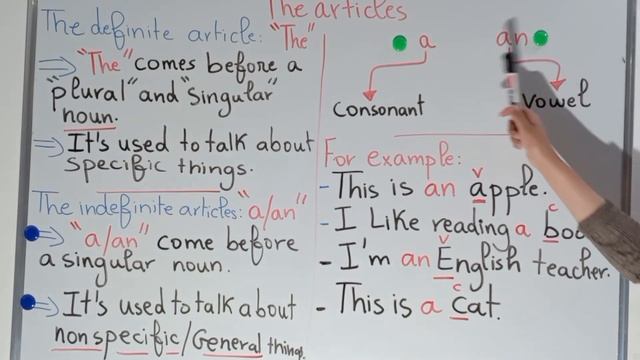 The articles
The definite article: "The"
⇒ "The" comes before a
"plural" and "singular"
noun.
⇒ It's used to talk about
specific things.
The indefinite articles: "a/an"
⇒ "a/an" come before
a singular noun.
⇒ It's used to talk about
non specific/General things.
a an
consonant vowel
For example:
v
- This is an apple.
c
- I Like reading a
v
- I'm an English teacher.
c
- This is a cat.